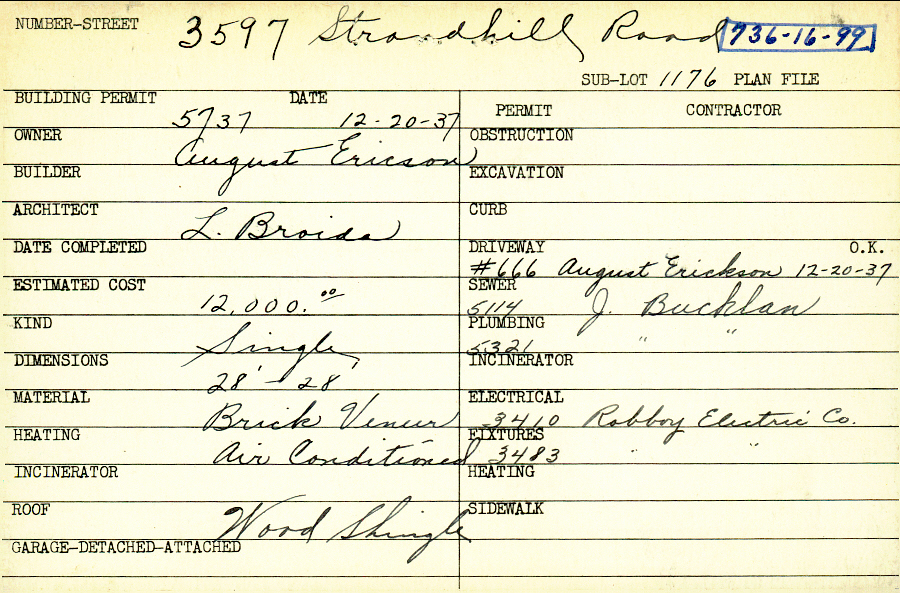 NUMBER-STREET 3597 Strandhill Road 736-16-99
SUB-LOT 1176 PLAN FILE
BUILDING PERMIT DATE
5737 12-20-37
OWNER August Ericson
BUILDER
ARCHITECT L. Broida
DATE COMPLETED
ESTIMATED COST 12,000.00
KIND Single
DIMENSIONS 28' - 28'
MATERIAL Brick Veneer
HEATING Air Conditioned
INCINERATOR
ROOF Wood Shingle
GARAGE-DETACHED-ATTACHED
PERMIT CONTRACTOR
OBSTRUCTION
EXCAVATION
CURB
DRIVEWAY O.K.
#666 August Erickson 12-20-37
SEWER
5114 J. Bucklan
PLUMBING
5321 " "
INCINERATOR
ELECTRICAL
3410 Robboy Electric Co.
FIXTURES
3483 " "
HEATING
SIDEWALK